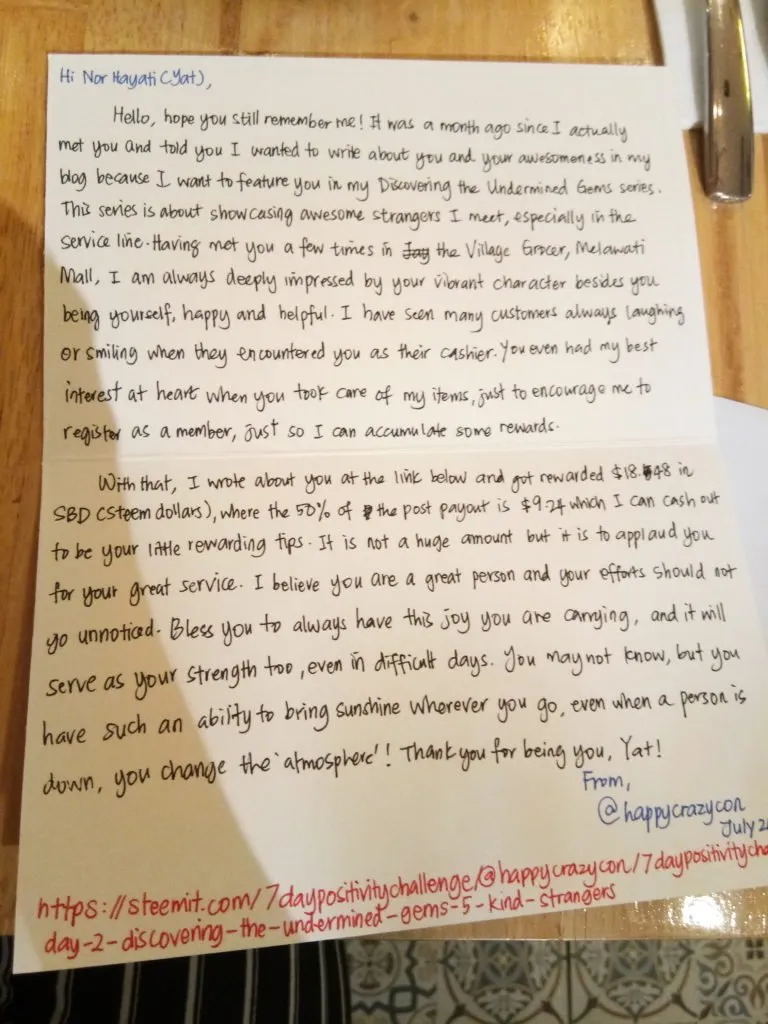 Hi Nor Hayati (Yat),
Hello, hope you still remember me! It was a month ago since I actually
met you and told you I wanted to write about you and your awesomeness in my
blog because I want to feature you in my Discovering the Undermined Gems series.
This series is about showcasing awesome strangers I meet, especially in the
service line. Having met you a few times in the Village Grocer, Melawati
Mall, I am always deeply impressed by your vibrant character besides you
being yourself, happy and helpful. I have seen many customers always laughing
or smiling when they encountered you as their cashier. You even had my best
interest at heart when you took care of my items, just to encourage me to
register as a member, just so I can accumulate some rewards.
With that, I wrote about you at the link below and got rewarded $18.48 in
SBD (Steem dollars), where the 50% of the post payout is $9.24 which I can cash out
to be your little rewarding tips. It is not a huge amount but it is to applaud you
for your great service. I believe you are a great person and your efforts should not
go unnoticed. Bless you to always have this joy you are carrying, and it will
serve as your strength too, even in difficult days. You may not know, but you
have such an ability to bring sunshine wherever you go, even when a person is
down, you change the 'atmosphere'! Thank you for being you, Yat!
From,
@happycrazycon
July 2
https://steemit.com/7daypositivitychallenge/@happycrazycon/7daypositivitycha
day-2-discovering-the-undermined-gems-5-kind-strangers